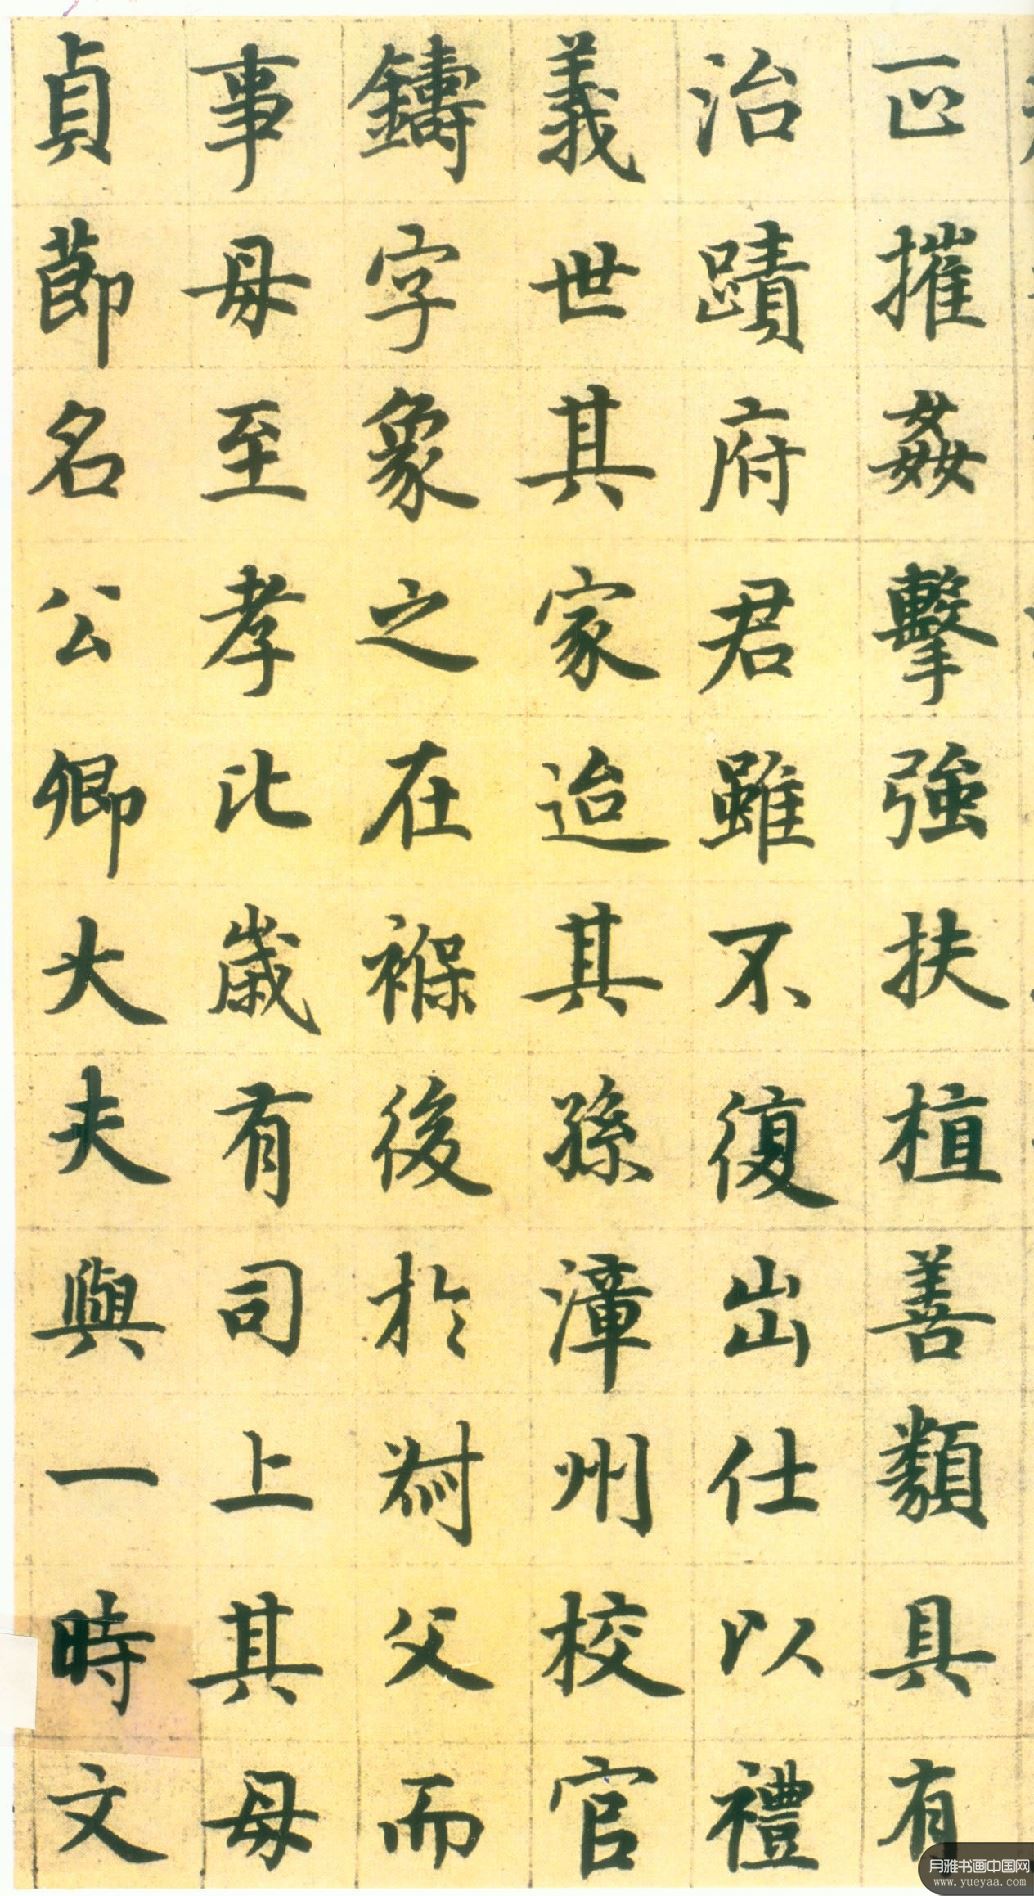 正摧姦擊強扶植善類具有
治蹟府君雖不復出仕以禮
義世其家迨其孫漳州校官
鑄字象之在褓後於尌父而
事母至孝比歲有司上其母
貞節名公卿大夫與一時文
月雅书画中国网
www.yueyaa.com